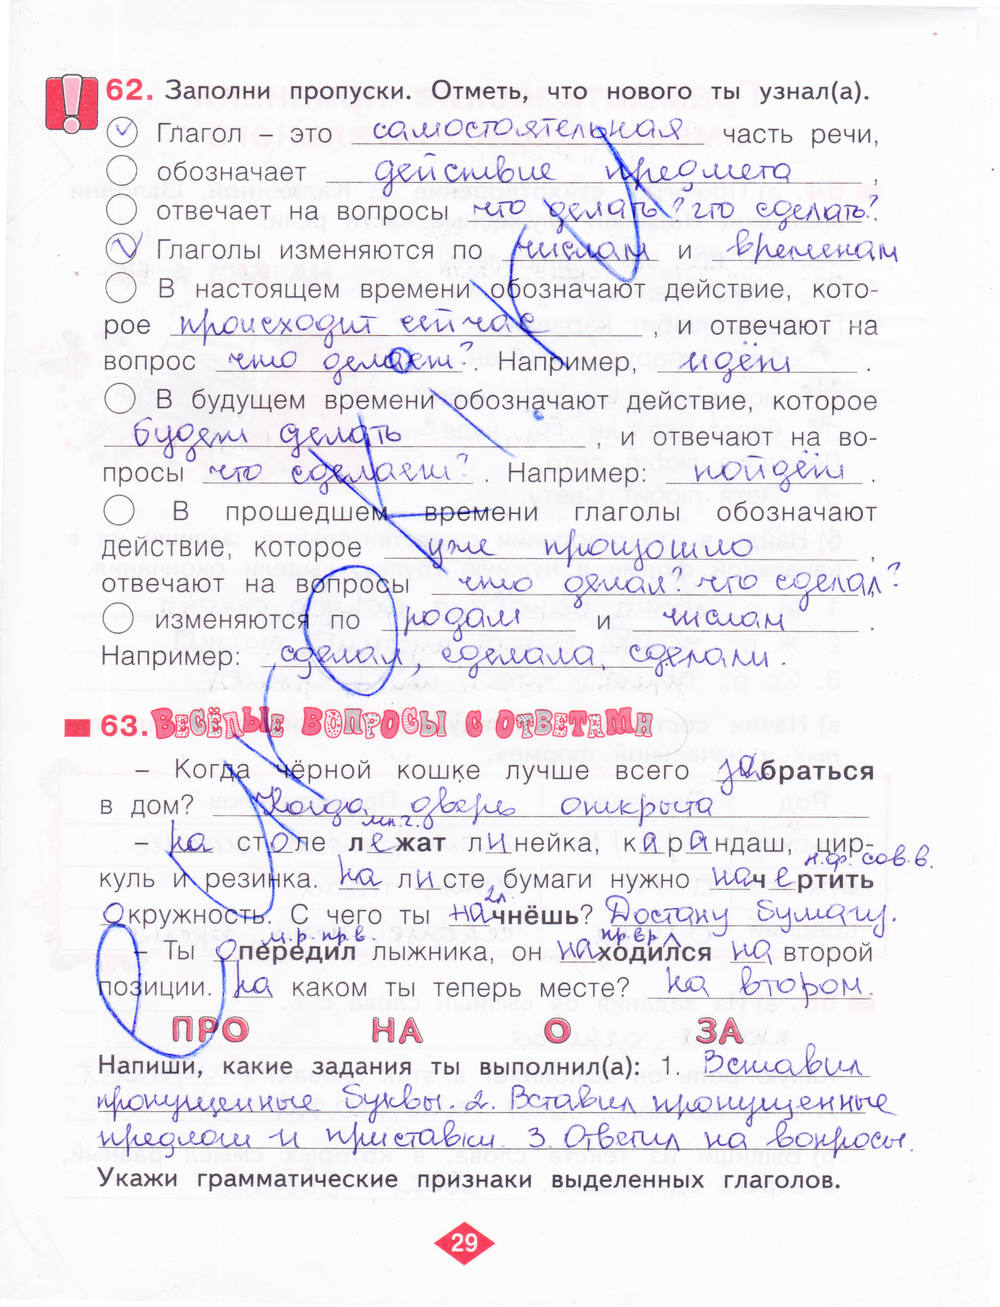 62. Заполни пропуски. Отметь, что нового ты узнал(а).
Глагол – это самостоятельная часть речи,
обозначает действие предмета ,
отвечает на вопросы что делать? что сделать?
Глаголы изменяются по числам и временам
В настоящем времени обозначают действие, кото-
рое происходит сейчас , и отвечают на
вопрос что делает? . Например, идёт .
В будущем времени обозначают действие, которое
будет делать , и отвечают на во-
просы что сделает? . Например: пойдёт .
В прошедшем времени глаголы обозначают
действие, которое уже произошло ,
отвечают на вопросы что делал? что сделал?
изменяются по родам и числам .
Например: сделал, сделала, сделали.
63. ВЕСЁЛЫЕ ВОПРОСЫ С ОТВЕТАМИ
– Когда чёрной кошке лучше всего забраться
в дом? Когда дверь открыта
мн.ч.
на столе лежат линейка, карандаш, цир-
н.ф. сов.в.
куль и резинка. на листе бумаги нужно начертить
2л.
окружность. С чего ты начнёшь? Достану бумагу.
м.р. пр.в. пр.вр.
– Ты опередил лыжника, он находился на второй
позиции. на каком ты теперь месте? на втором.
ПРО НА О ЗА
Напиши, какие задания ты выполнил(а): 1. Вставил
пропущенные буквы. 2. Вставил пропущенные
предлоги и приставки. 3. Ответил на вопросы.
Укажи грамматические признаки выделенных глаголов.
29